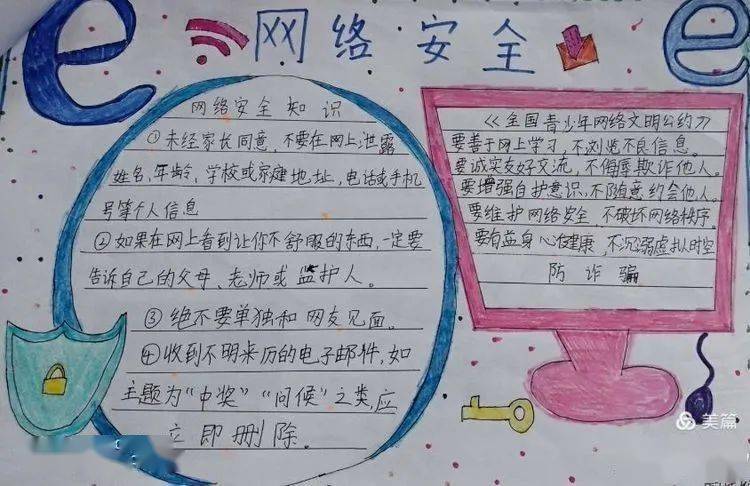 网络安全
网络安全知识
①未经家长同意，不要在网上泄露
姓名、年龄、学校或家庭地址，电话或手机
号等个人信息
②如果在网上看到让你不舒服的东西，一定要
告诉自己的父母、老师或监护人。
③绝不要单独和网友见面。
④收到不明来历的电子邮件，如
主题为“中奖”“问候”之类，应
立即删除。
《全国青少年网络文明公约》
要善于网上学习，不浏览不良信息。
要诚实友好交流，不侮辱欺诈他人。
要增强自护意识，不随意约会他人。
要维护网络安全 不破坏网络秩序。
要有益身心健康，不沉溺虚拟时空
防诈骗
美篇